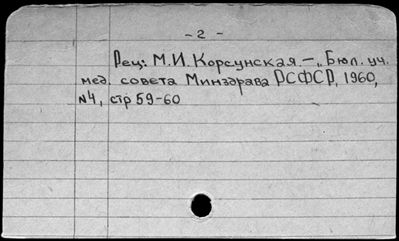 - 2 -
Рец: М.И. Корсунская. – „Бюл. уч.
мед. совета Минздрава РСФСР, 1960,
№4, стр 59-60